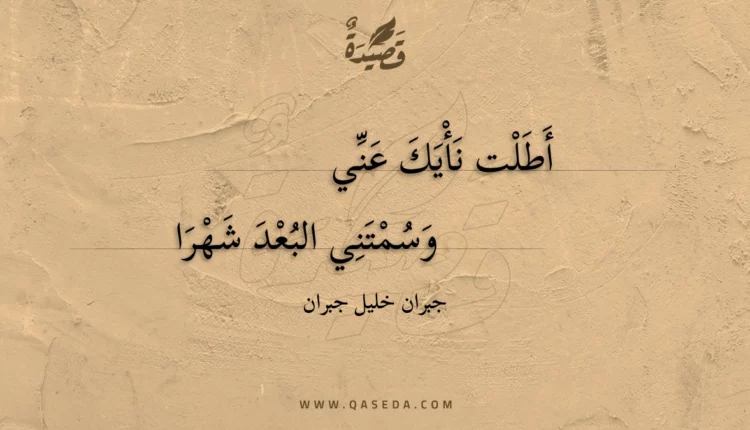 قَصِيدَةٌ
أَطَلْت نَأْيَكَ عَنِّي
وَسُمْتَنِي البُعْدَ شَهْرَا
جبران خليل جبران
WWW.QASEDA.COM